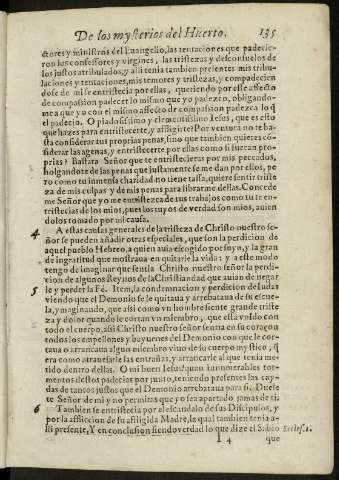 De los mysterios del Huerto. 135
ctores y ministros del Euangelio, las tentaciones que padecie-
ron los confessores y virgines, las tristezas y desconsuelos de
los justos atribulados, y assi tenia tambien presentes mis tribu-
laciones y tentaciones, mis temores y tristezas, y compadecien
dose de mi se entristecia por ellas, queriendo por este affecto
de compassion padecer lo mismo que yo padezco, obligando-
me a que yo con el mismo affecto de compassion padezca lo q̃
el padecio. O piadosissimo y clementissimo Iesus, que es esto
que hazes para entristecerte, y affligirte? Por ventura no te ba-
sta considerar tus proprias penas, sino que tambien quieres cõ-
siderar las agenas, y entristecerte por ellas como si fueran pro-
prias? Bastara Señor que te entristecieras por mis peccados,
holgandote de las penas que justamente se me dan por ellos, pe
ro como tu inmensa charidad no tiene tassa, quiere sentir triste
za de mis culpas y de mis penas para librarme dellas. Concede
me Señor que yo me entristezca de tus trabajos como tu te en-
tristecias de los mios, pues los tuyos de verdad son mios, auien
dolos tomado por mi causa.
4 A estas causas generales de la tristeza de Christo nuestro se-
ñor se pueden añadir otras especiales, que son la perdicion de
aquel pueblo Hebreo, a quien auia escogido por suyo, y la gran
de ingratitud que mostraua en quitarle la vida: y a este modo
tengo de imaginar que sentia Christo nuestro señor la perdi-
cion de algunos Reynos de la Christiandad que auian de negar
5 le y perder la Fè. Item, la condemnacion y perdicion de Iudas
viendo que el Demonio se le quitaua y arrebataua de su escue-
la, ymaginando, que assi como vn hombre siente grande triste
za y dolor quando le cortan vn miembro, que està vnido con
todo el cuerpo, assi Christo nuestro señor sentia en su coraçon
todos los empellones y bayuenes del Demonio con que le cor-
taua o arrancaua algun miembro viuo de su cuerpo mystico, q̃
era como atrauesarle las entrañas, y arrancarle al que tenia me-
tido dentro dellas. O mi buen Iesus quan innumerables tor-
mentos destos padecias por junto, teniendo presentes las cay-
das de tantos justos que el Demonio arrebataua para si. Duele
te Señor de mi y no permitas que yo sea apartado jamas de ti.
6 Tambien se entristecia por el escandalo de sus Discipulos, y
por la affliccion de su affligida Madre, la qual tambien tenia a-
lli presente, Y en conclusion siendo verdad lo que dize el Sabio Eccles. 1.
I 4 que